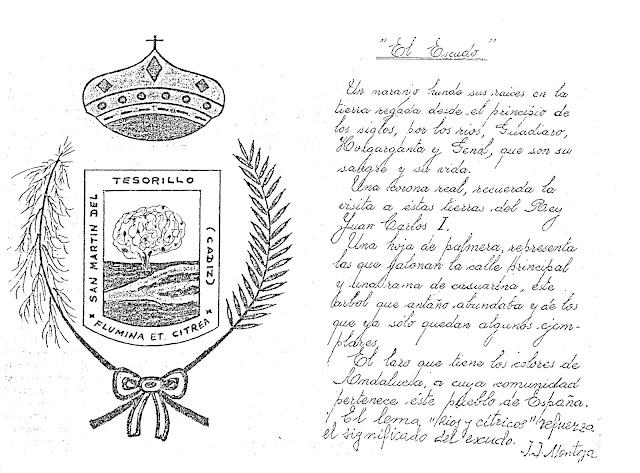 TESORILLO
SAN MARTIN DEL
(CADIZ)
FLUMINA ET CITREA
"El Escudo"
Un naranjo hunde sus raices en la
tierra regada desde el principio de
los siglos, por los rios, Guadiaro,
Hozgarganta y Genal, que son su
sangre y su vida.
Una corona real, recuerda la
visita a estas tierras del Rey
Juan Carlos I.
Una hoja de palmera, representa
las que jalonan la calle principal
y una rama de casuarina, este
arbol que antaño abundaba y de los
que ya sólo quedan algunos ejem-
plares.
El lazo que tiene los colores de
Andalucia, a cuya comunidad
pertenece este pueblo de España.
El lema "Rios y citricos" refuerza
el significado del escudo.
J.J. Montoya